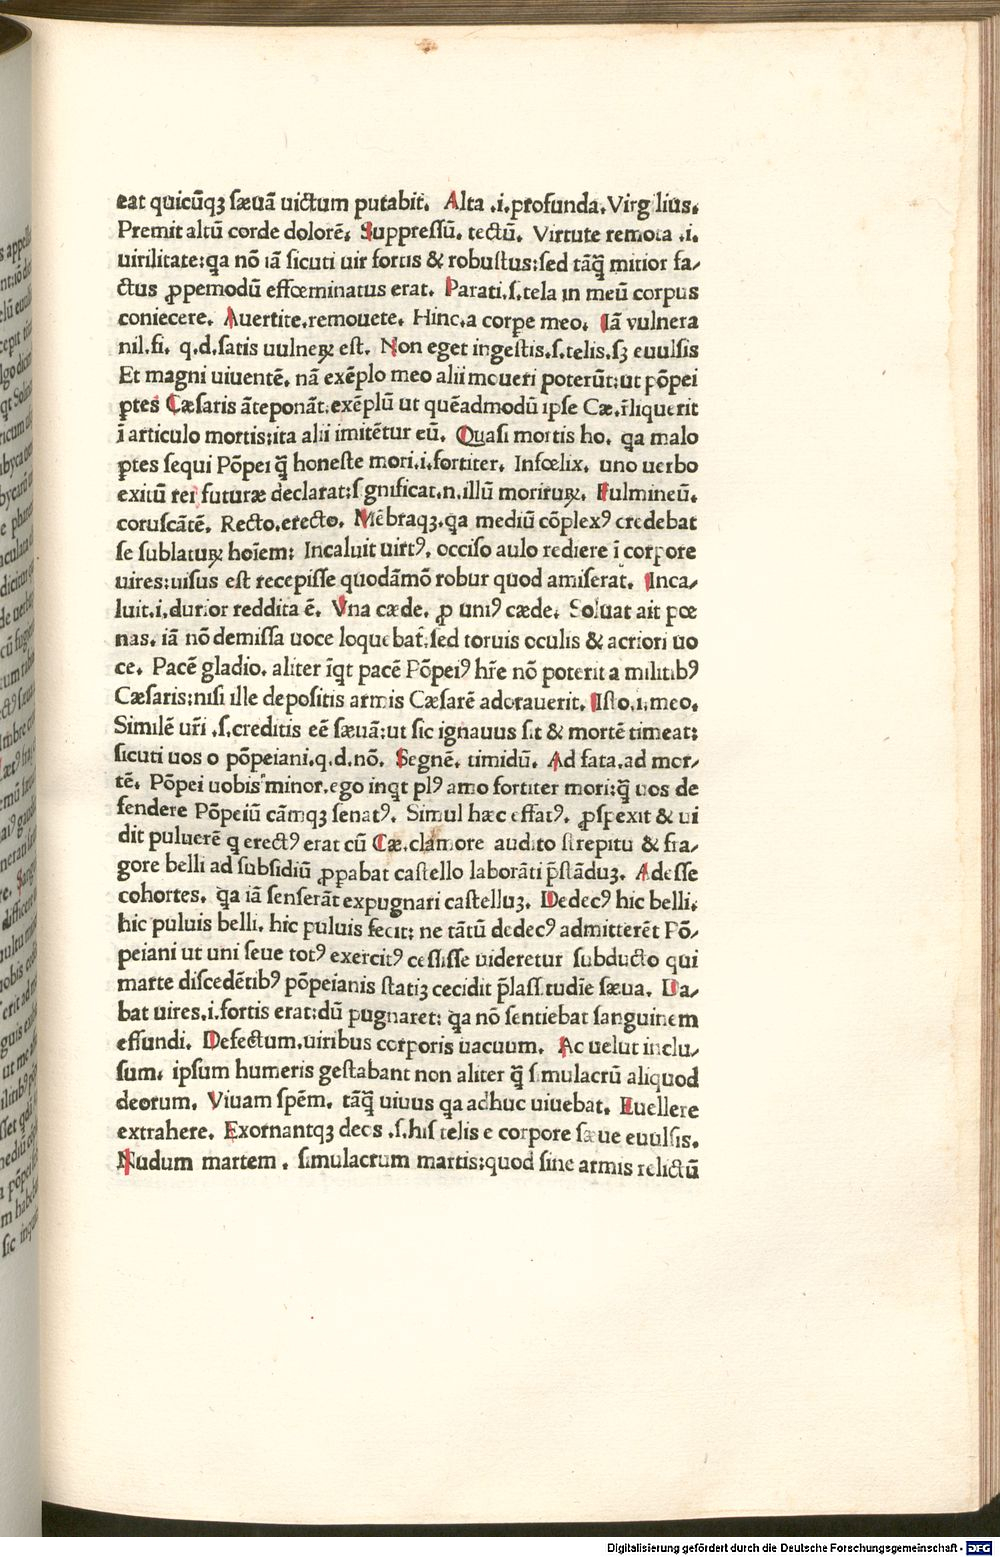 eat quicũqꝫ ſæuã uictum putabit. Alta .i.profunda.Virg lius.
Premit altũ corde dolorẽ. Suppreſſũ. tectũ. Virtute remota .i.
uirilitate:qa nõ iã ſicuti uir fortis & robuſtus:ſed tãq̃ mitior fa/
ctus ꝓpemodũ effœminatus erat. Parati.ſ.tela in meũ corpus
coniecere. Auertite.remouete. Hinc.a corpe meo. Iã vulnera
nil.fi. q.d.ſatis uulneꝝ eſt. Non eget ingeſtis.ſ.telis.ſꝫ euulſis
Et magni uiuentẽ. nã exẽplo meo alii moueri poterũt:ut põpei
ꝑtes Cæſaris ãteponãt.exẽplũ ut quẽadmodũ ipſe Cæ.r̃liquerit
ĩ articulo mortis:ita alii imitẽtur eũ. Quaſi mortis ho. qa malo
ꝑtes ſequi Põpei q̃ honeſte mori.i.fortiter. Infœlix. uno uerbo
exitũ rei futuræ declarat:ſ gnificat.n.illũ morituꝝ. Fulmineũ.
coruſcãtẽ. Recto.erecto. Mẽbraqꝫ.qa mediũ cõplexꝰ credebat
ſe ſublatuꝝ hoĩem: Incaluit uirtꝰ. occiſo aulo rediere ĩ corpore
uires:uiſus eſt recepiſſe quodãmõ robur quod amiſerat. Inca/
luit.i.durior reddita ẽ. Vna cæde. ꝓ uniꝰ cæde. Soluat ait pœ
nas. iã nõ demiſſa uoce loquebat̃.ſed toruis oculis & acriori uo
ce. Pacẽ gladio. aliter ĩqt pacẽ Põpeiꝰ hr̃e nõ poterit a militibꝰ
Cæſaris:niſi ille depoſitis armis Cæſarẽ adorauerit. Iſto.i.meo.
Similẽ ur̃i .ſ.creditis eẽ ſæuã:ut ſic ignauus ſit & mortẽ timeat:
ſicuti uos o põpeiani.q.d.nõ. Segnẽ. timidũ. Ad fata.ad mor/
tẽ. Põpei uobis minor.ego inqt plꝰ amo fortiter mori:q̃ uos de
fendere Põpeiũ cãmqꝫ ſenatꝰ. Simul hæc effatꝰ. ꝓſpexit & ui
dit puluerẽ q erectꝰ erat cũ Cæ.clamore audito ſtrepitu & fra/
gore belli ad ſubſidiũ ꝓpabat caſtello laborãti p̃ſtãduꝫ. Adeſſe
cohortes. qa iã ſenſerãt expugnari caſtelluꝫ. Dedecꝰ hic belli.
hic puluis belli. hic puluis fecit: ne tãtũ dedecꝰ admitterẽt Põ/
peiani ut uni ſeue totꝰ exercitꝰ ceſſiſſe uideretur ſubducto qui
marte diſcedẽtibꝰ põpeianis ſtatiꝫ cecidit p̃laſſitudĩe ſæua. Da/
bat uires.i.fortis erat:dũ pugnaret: qa nõ ſentiebat ſanguinem
effundi. Defectum.uiribus corporis uacuum. Ac uelut inclu/
ſum. ipſum humeris geſtabant non aliter q̃ ſ mulacrũ aliquod
deorum. Viuam ſpẽm. tãq̃ uiuus qa adhuc uiuebat. Euellere
extrahere. Exornantqꝫ deos .ſ.hiſ telis e corpore ſæue euulſis.
Nudum martem . ſimulacrum martis:quod ſine armis relictũ
Digitalisierung gefördert durch die Deutsche Forschungsgemeinschaft - DFG